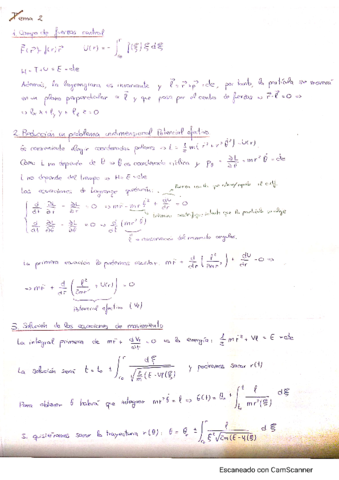 Tema 2
1. Campo de fuerzas central
F(r) = f(r) · r    U(r) = - ∫ f(ξ) ξ dξ
H = T + U = E = cte
Además, la lagrangiana es invariante y l = r × p = cte, por tanto, la partícula se moverá
en un plano perpendicular a l y que pasa por el centro de fuerzas => r · l = 0 =>
2. Reducción al problema unidimensional. Potencial efectivo
Es conveniente elegir coordenadas polares => L = 1/2 m (ṙ² + r² θ̇²) - U(r)
Como L no depende de θ => θ es coordenada cíclica y pθ = ∂L/∂θ̇ = mr² θ̇ = cte
L no depende del tiempo => H = E = cte
Las ecuaciones de Lagrange quedarán:
d/dt ∂L/∂ṙ - ∂L/∂r = 0 => mr̈ - mrθ̇² + dU/dr = 0
d/dt ∂L/∂θ̇ - ∂L/∂θ = 0 => d/dt (mr² θ̇) = 0
l = constante del momento angular
La primera ecuación la podemos reescribir: mr̈ + d/dr (l²/2mr²) + dU/dr = 0 =>
=> mr̈ + d/dr (l²/2mr² + U(r)) = 0
Potencial efectivo (Ve)
3. Solución de las ecuaciones de movimiento
La integral primera de mr̈ + dVe/dr = 0 es la energía: 1/2 mṙ² + Ve = E = cte
La solución será t = t₀ ± ∫ dξ / √(2/m (E - Ve(ξ))) y podremos sacar r(t)
Para obtener θ habrá que integrar mr² θ̇ = l => θ(t) = θ₀ + ∫ l / mr²(ξ) dξ
Si quisiéramos sacar la trayectoria r(θ): θ = θ₀ ± ∫ l / ξ² √(2m(E - Ve(ξ))) dξ
Escaneado con CamScanner